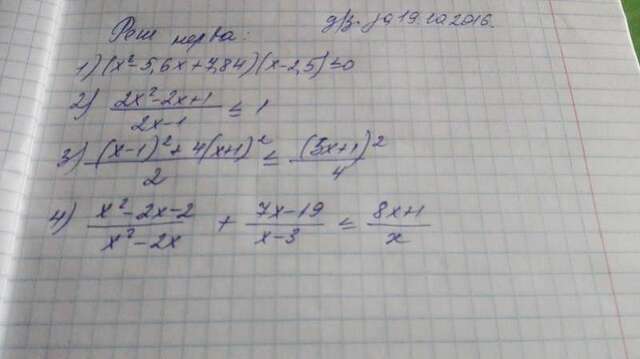 Реш нерва: д/з. за 19.10.2016.
1) (x²-5,6x+7,84)(x-2,5)>0
2) (2x²-2x+1)/(2x-1) ≤ 1
3) ((x-1)²+4(x+1)²)/2 ≤ (5x+1)²/4
4) (x²-2x-2)/(x²-2x) + (7x-19)/(x-3) ≤ (8x+1)/x